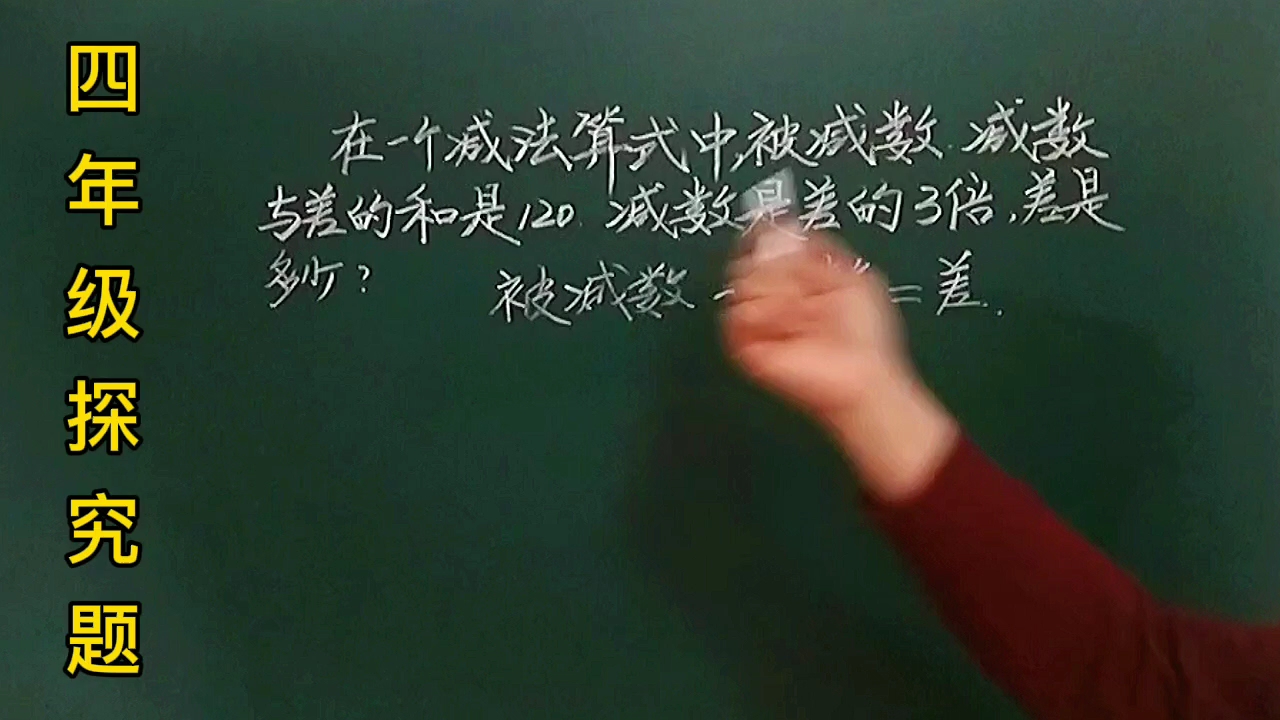 四年级探究题
在一个减法算式中,被减数.减数
与差的和是120.减数是差的3倍,差是
多少?
被减数 - = 差.